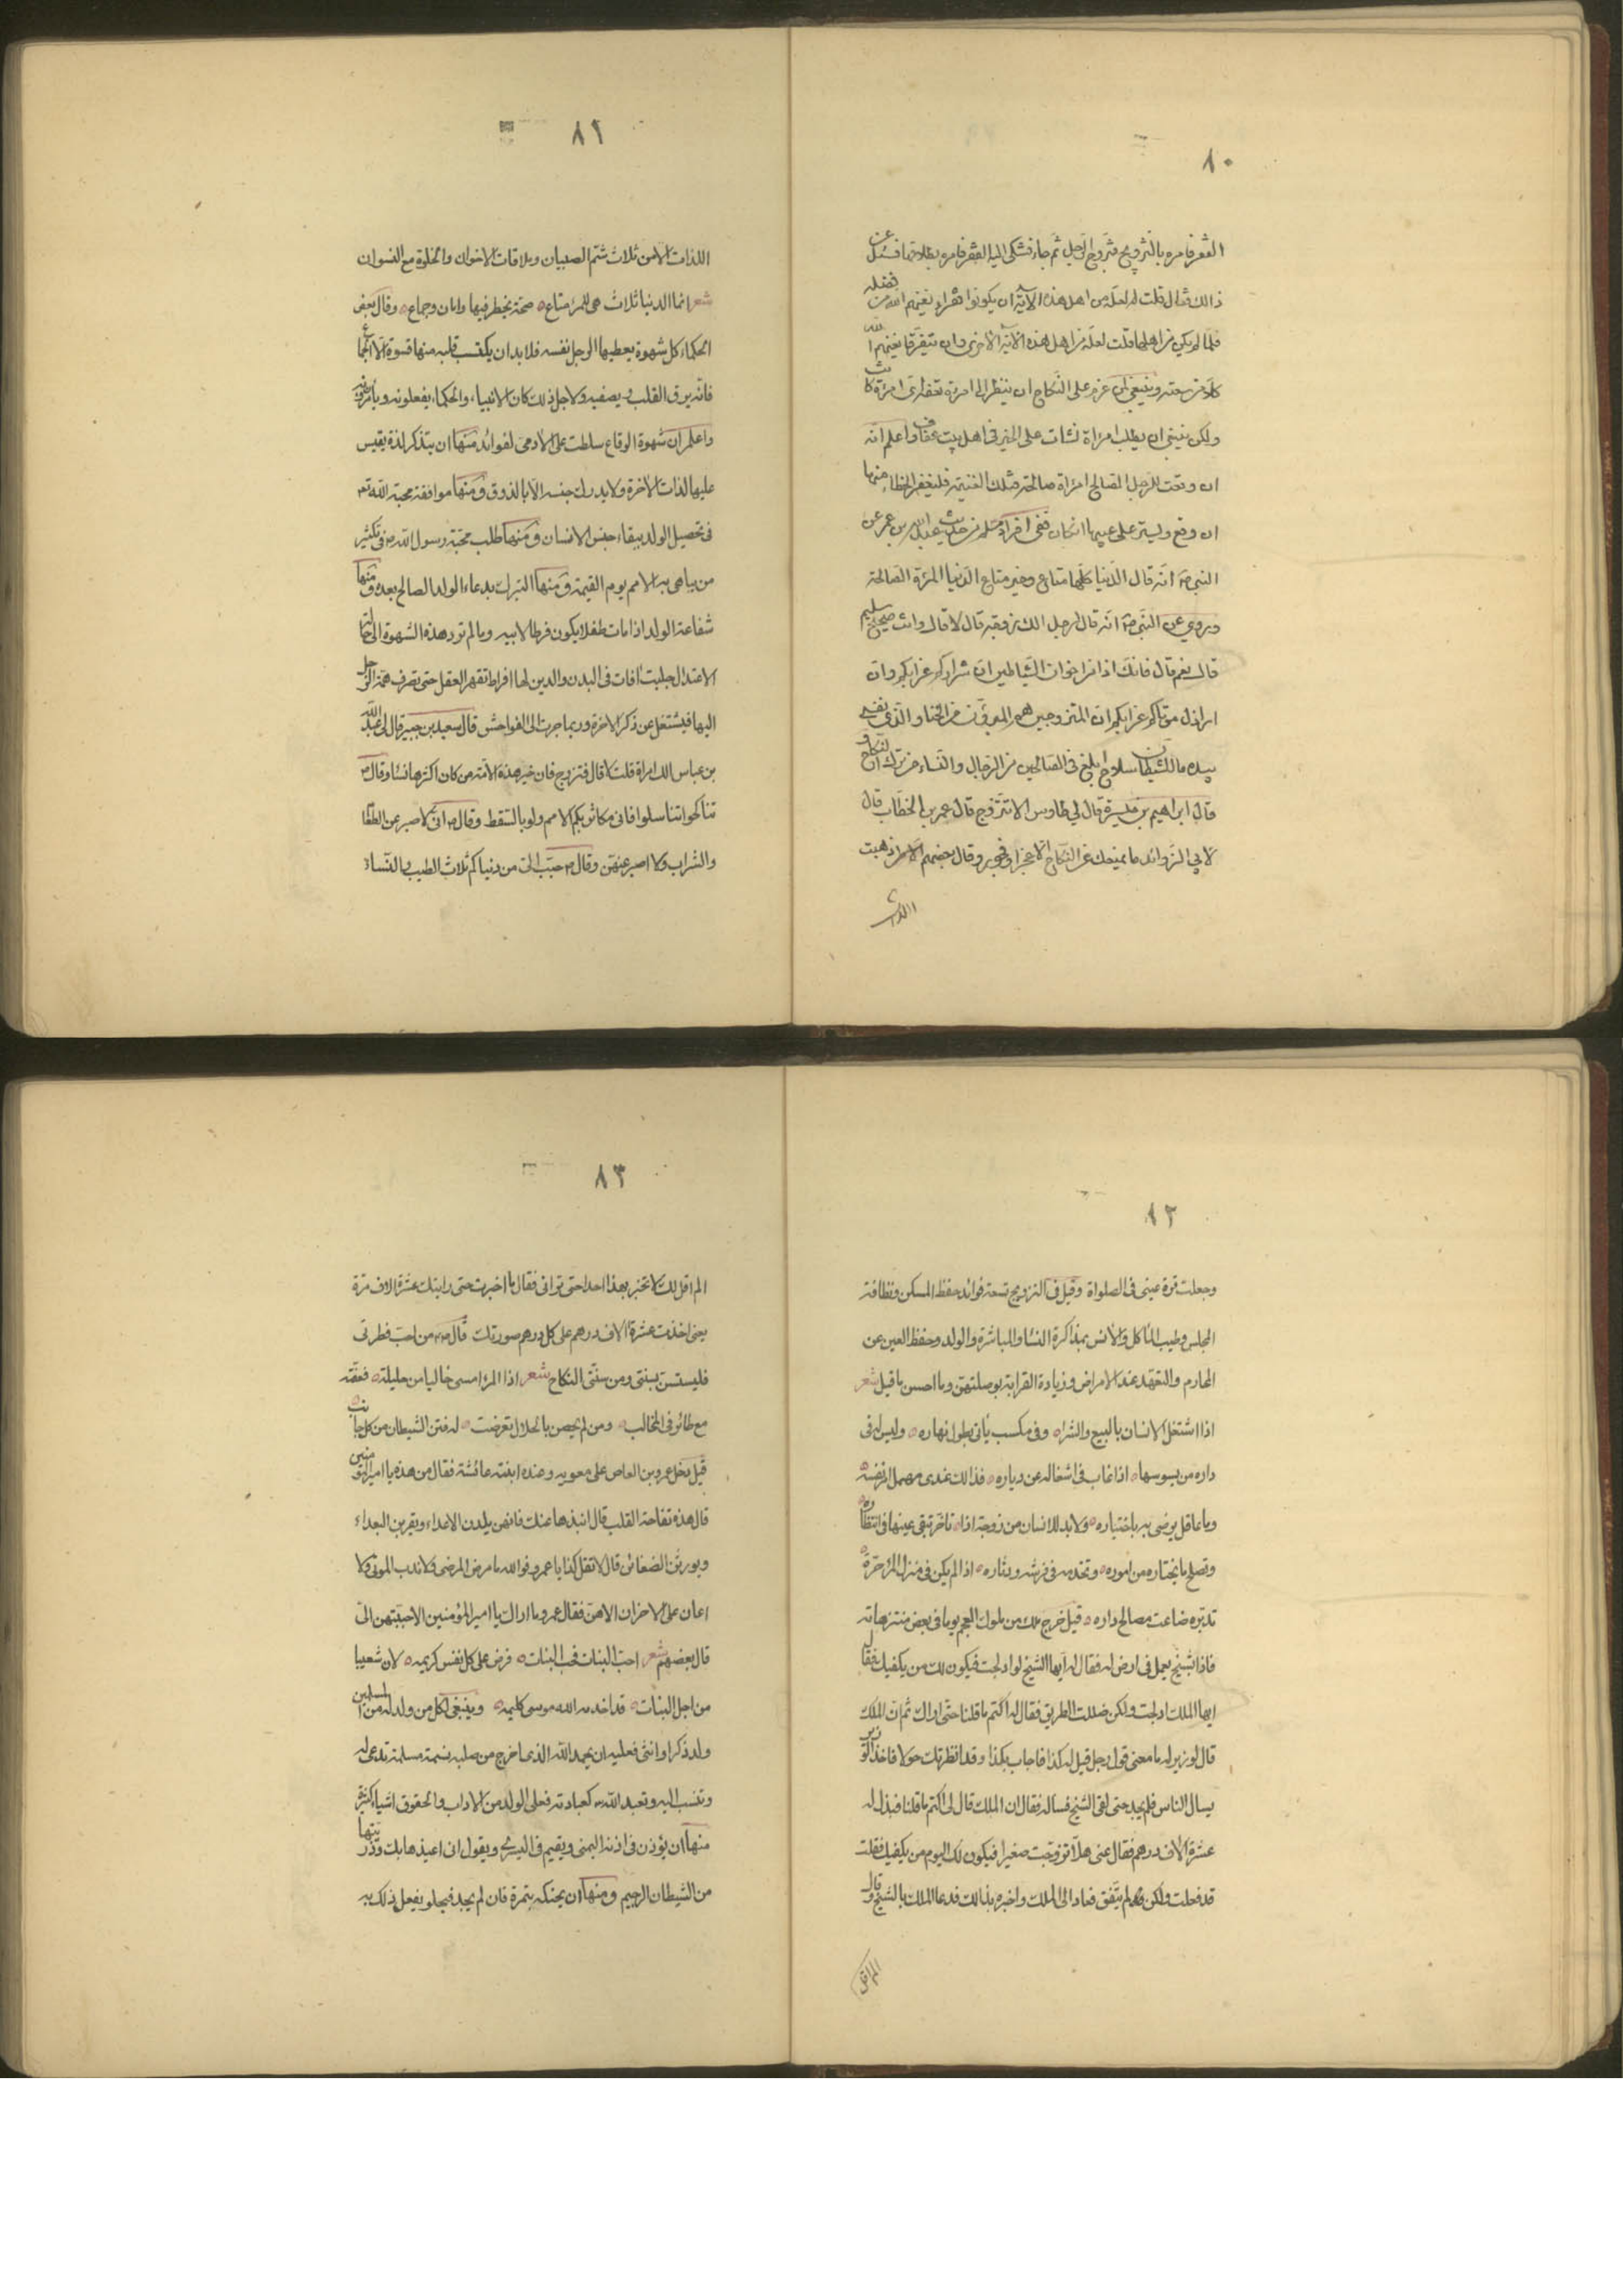 ٨٠
الفقر فامره بالتزويج فتزوج الرجل ثم جاء فشكى اليه الفقر فامره بطلاقها فسئل عن
ذالك فقال قلت له لعله من اهل هذه الآية ان يكونوا فقراء يغنهم الله من فضله
فلما لم يكن من اهلها قلت لعله من اهل هذه الآية الاخرى وان يتفرقا يغنهم الله
كلا من سعته وينبغى لمن عزم على النكاح ان ينظر الى امرءة
ولكن ينبغى ان يطلب امرأة نشات على الخير فى اهل بيت عفاف واعلم انه
ان وقعت للرجل الصالح امرأة صالحة فليغفر الخطاء منها
ان وقع وليستر على عيبها ان كان ففى افراد مسلم من حديث عبد الله بن عمر عن
النبى ص انه قال الدنيا كلها متاع وخير متاع الدنيا المرءة الصالحة
وروى عن النبى ص انه قال لرجل الك زوجة قال لا قال وانت صحيح سليم
قال نعم قال فانك اذا من اخوان الشياطين ان شراركم عزابكم وان
اراذل موتاكم عزابكم ان المتزوجين هم المبرؤن من الخنا والذى نفسى
بيده ما للشيطان سلاح ابلغ فى الصالحين من الرجال والنساء من ترك النكاح و
قال ابراهيم بن ميسرة قال لى طاوس الا تتزوج قال عمر بن الخطاب قال
لابى الزوائد ما يمنعك عن النكاح الا عجز او فجور وقال بعضهم الا مر ذهبت
اللذات
٨١
اللذات الا من ثلاث شتم الصبيان وملاقات الاخوان والخلوة مع النسوان
شعر انما الدنيا ثلاث هى للمرء متاع صحة يخطر فيها وامان وجماع وقال بعض
الحكماء كل شهوة يعطيها الرجل نفسه فلا بد ان يكتسب قلبه منها قسوة الا الجماع
فانه يرق القلب ويصفيه ولاجل ذلك كان الانبياء والحكماء يفعلونه ويامرونه
واعلم ان شهوة الوقاع سلطت على الادمى لفوائد منها ان يتذكر لذة يقيس
عليها لذات الاخرة ولا يدرك جنسه الا بالذوق ومنها موافقة محبة الله تع
فى تحصيل الولد ببقاء جنس الانسان ومنها طلب محبة رسول الله ص فى تكثير
من يباهى به الامم يوم القيمة ومنها التبرك بدعاء الولد الصالح بعده ومنها
شفاعة الولد اذا مات طفلا يكون فرطا لابيه وما لم ترد هذه الشهوة الى حالة
الاعتدال جلبت افات فى البدن والدين لها افراط تقهر العقل حتى تصرف همة الرجل
اليها فيشتغل عن ذكر الاخرة وربما جرت الى الفواحش قال سعيد بن جبير قال لى عبد الله
بن عباس الك امراة قلت لا قال فتزوج فان خير هذه الامة من كان اكثرها نساء وقال ص
تناكحوا تناسلوا فانى مكاثر بكم الامم ولو بالسقط وقال ص انى لا اصبر عن الطعام
والشراب ولا اصبر عنهن وقال ص حبب الى من دنياكم ثلاث الطيب والنساء
٨٢
وجعلت قرة عينى فى الصلواة وقيل فى التزويج تسعة فوائد حفظ المسكن ونظافة
المجلس وطيب الماكل والانس بمذاكرة النساء والمباشرة والولد وحفظ العين عن
المحارم والتعهد عند الامراض وزيادة القرابة بوصلتهن وما احسن ما قيل شعر
اذا اشتغل الانسان بالبيع والشراه وفى مكسب ياتى بطول نهاره وليس له فى
داره من يسوسها اذا غاب فى اشغاله عن دياره فذالك عندى مهمل لنفسه
وما عاقل يرضى به باختياره ولا بد للانسان من زوجة اذا تاخر تبقى عينها فى انتظاره
وتصلح ما يختاره من اموره وتخدمه فى فرشه ودثاره اذا لم يكن فى منزل المرء حرة
تدبره ضاعت مصالح داره قيل خرج ملك من ملوك العجم يوما فى بعض منتزهاته
فاذا بشيخ يعمل فى ارض له فقال له ايها الشيخ لو ادلجت فيكون لك من يكفيك فقال
ايها الملك ادلجت ولكن ضللت الطريق فقال له اكتم ما قلنا حتى اراك ثم ان الملك
قال لوزيره ما معنى قول رجل قيل له كذا فاجاب بكذا وقد انظرتك حولا فاخذ الوزير
يسال الناس فلم يجد حتى لقى الشيخ فساله فقال ان الملك قال لى اكتم ما قلنا فبذل له
عشرة الاف درهم فقال عنى هلا تزوجت صغيرا فيكون لك اليوم من يكفيك فقلت
قد فعلت ولكن لم يتفق فعاد الى الملك واخبره بذالك فدعا الملك بالشيخ وقال
الم اقل
٨٣
الم اقل لك لا تخبر بهذا احدا حتى ترانى فقال ما اخبرت حتى رايتك عشرة الاف مرة
يعنى اخذت عشرة الاف درهم على كل درهم صورتك قال ص من احب فطرتى
فليستسن بسنتى ومن سنتى النكاح شعر اذا المرء امسى خاليا من حليلة فعقه
مع طائر فى المخالب ومن لم يحصن بالحلال تعرضت له فتن الشيطان من كل جانب
قيل دخل عمرو بن العاص على معويه وعنده ابنته عائشة فقال من هذه يا امير المؤمنين
قال هذه تفاحة القلب قال انبذها عنك فانهن يلدن الاعداء ويقربن البعداء
ويورثن الضغائن قال لا تقل كذا يا عمرو فوالله ما مرض المرضى ولا ندب الموتى ولا
اعان على الاحزان الا هن فقال عمرو ما اراك يا امير المؤمنين الا حببتهن الى
قال بعضهم شعر احب البنات فحب البنات فرض على كل نفس كريمه لان شعيبا
من اجل البنات قد اخدمه الله موسى كليمه وينبغى لكل من ولد له من المسلمين
ولد ذكر او انثى فعليه ان يحمد الله الذى اخرج من صلبه نسمة مسلمة تدعى له
وتنسب اليه وتعبد الله كعبادته فعلى الولد من الاداب والحقوق اشياء كثيرة
منها ان يؤذن فى اذنه اليمنى ويقيم فى اليسرى ويقول انى اعيذها بك وذريتها
من الشيطان الرجيم ومنها ان يحنكه بتمرة فان لم يجد فبحلو يفعل ذلك به